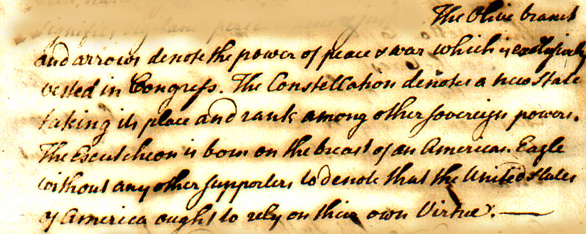 The Olive branch
and arrows denote the power of peace & war which is exclusively
vested in Congress. The Constellation denotes a new State
taking its place and rank among other sovereign powers.
The Escutcheon is born on the breast of an American Eagle
without any other supporters to denote that the United States
of America ought to rely on their own Virtue. —